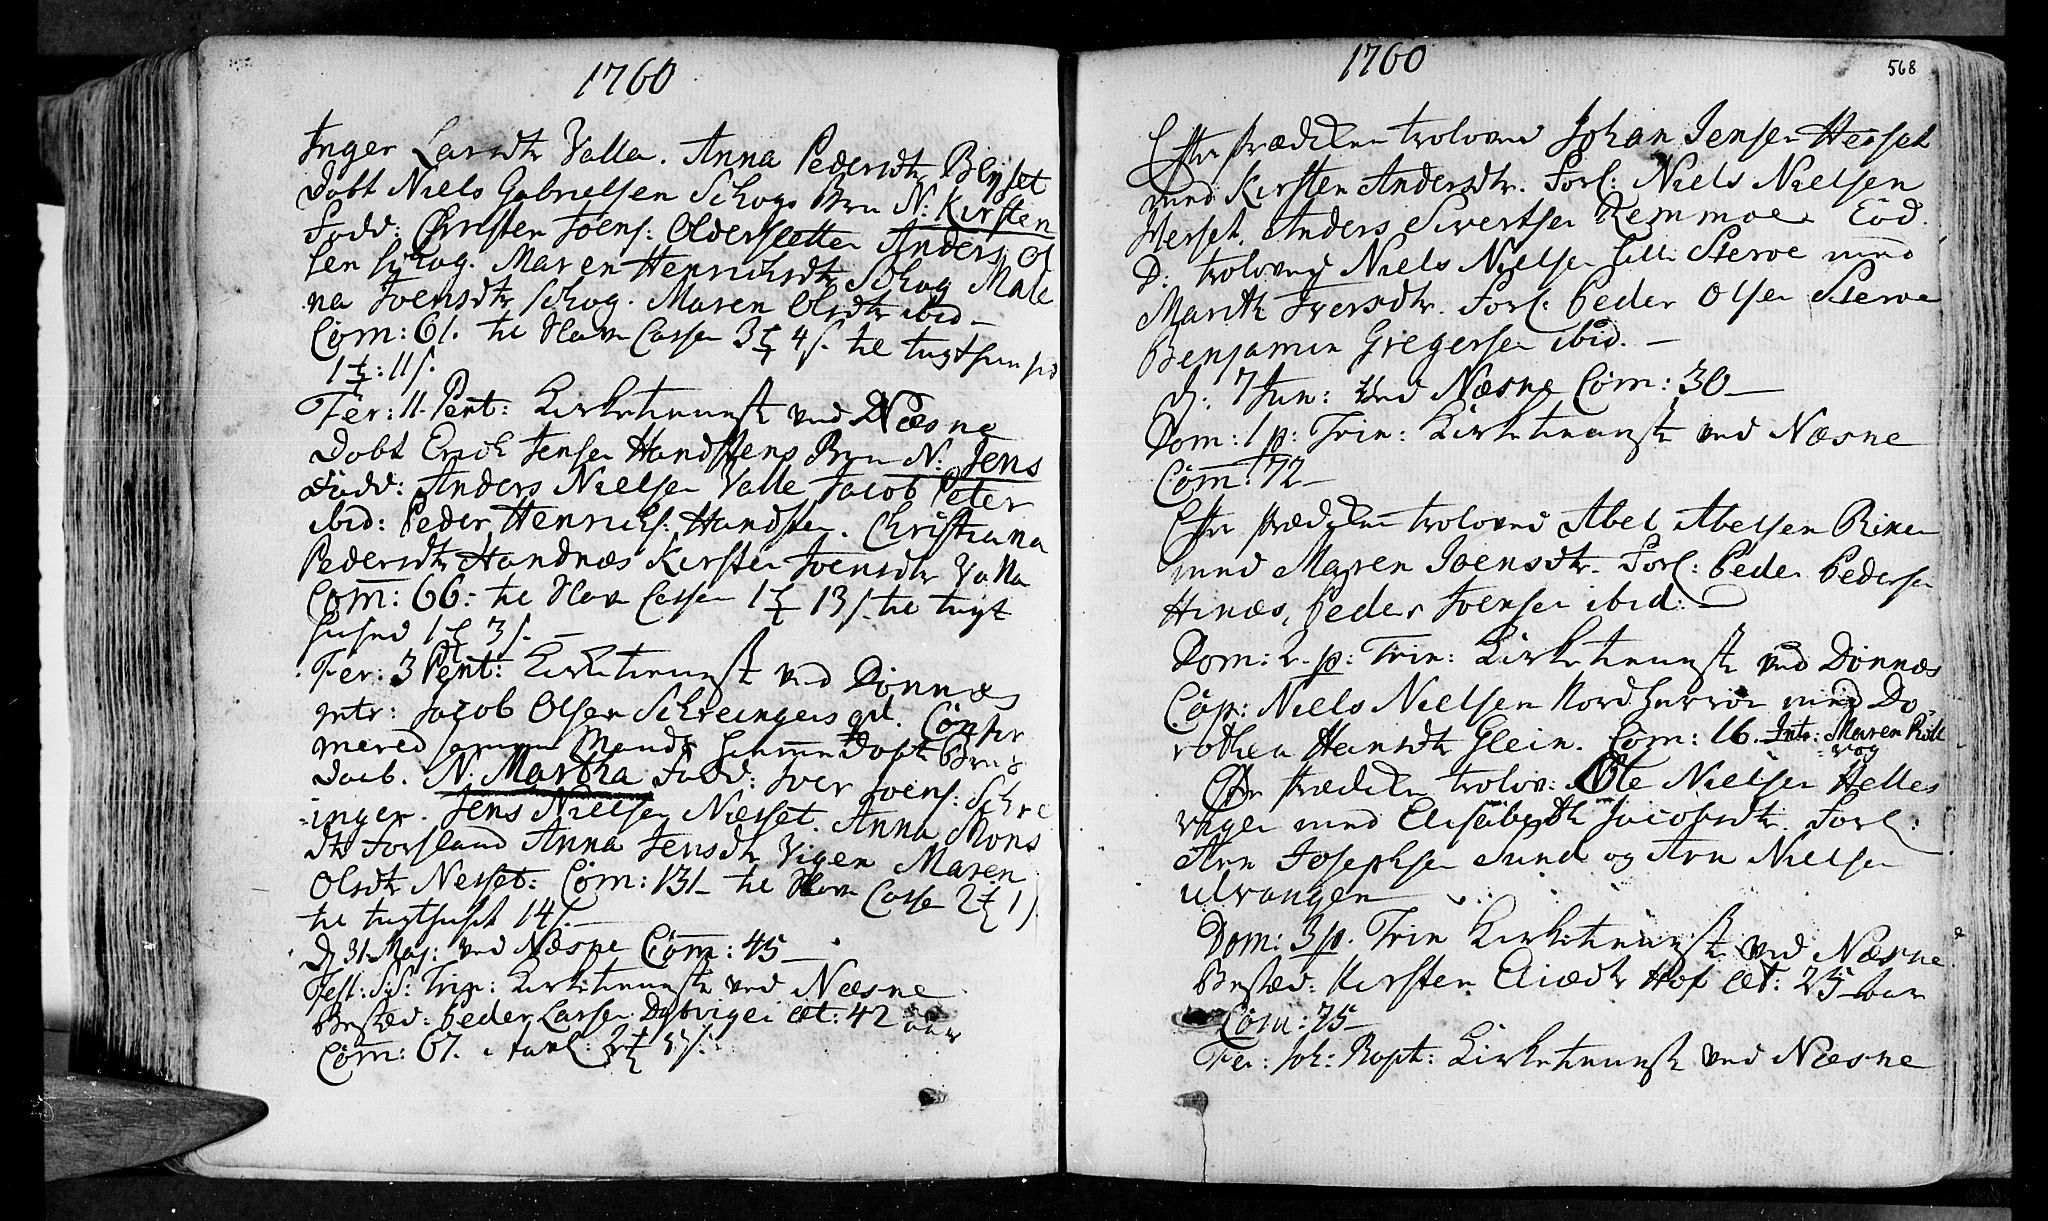 1760
Inger Larsdtr Valla. Anna Pedersdtr Blyset
Døbt Niels Gabrielsen Schogs Brn N: Kirsten
Fadd: Christen Joens: Oldersletten Anders Ol
sen Schog. Maren Henrichsdtr Schog Male
na Joensdtr Schog. Maren Olsdtr ibid –
Com: 61. til Nav Cassen 3 4 s. til tugthuuset
1 : 11 s.
Fer: 11. Pent: Kirketieneste ved Næsne
Døbt Erich Jensen Handstens Brn N: Jens
Fadd: Anders Nielsen Valle Jacob Peter
ibid: Peder Henrichs: Handsten. Christiana
Pedersdtr Handnæs Kirsten Joensdtr Valla
Com: 66: til Cassen 1 13 s. til tugt
huset 1 3 s. –
Fer: 3 Pent: Kirketieneste ved Dønnæs
Intr: Jacob Olsen Schreingers qd. Confir
mered hiemme Døbt Brns
Daab. N. Martha Fadd: Iver Joens: Schre
inger. Jens Nielsen Næsset. Anna Mons
dtr Forsland Anna Jensdtr Vigen Maren
Olsdtr Nesset: Com: 131– til Cassen 2 1 s
til tugthuset 14 s. –
D 31 Maj: ved Næsne Com: 45 –
Fest: SS: Trin: Kirketieneste ved Næsne
Bested: Peder Larsen æt: 42 aar
Com: 67. i tavl: 3
1760
568
Efter prædiken troloved Johan Jensen Herset
med Kirsten Andersdtr. Forl: Niels Nielsen
Herset. Anders Sivertsen Remmoe. Eod.
D: trolovet Niels Nielsen Sterve med
Marith Iversdtr. Forl: Peder Olsen Sterve
Benjamin Gregersen ibid. –
D: 7 Jun: ved Næsne Com: 30 –
Dom: 1 p: Trin: Kirketieneste ved Næsne
Com: 72 –
Efter prædiken troloved Abel Abelsen
med Maren Joensdtr. Forl: Peder Pedersen
Hinæs, Peder Joensen ibid: –
Dom: 2. p: Trin: Kirketieneste ved Dønnæs
Cop: Niels Nielsen Nord med Do
rothea Hansdtr Glein. Com: 16. Intr: Maren
vog
Efter prædiken trolov: Ole Nielsen Helles
vigen med Elisabeth Jacobsdtr. Forl:
Arn Josephsen Sund og Arn Nielsen
Ulvangen
Dom: 3 p. Trin Kirketieneste ved Næsne
Bested: Kirsten Hof æt: 25 aar
Com: 75 –
Fer: Joh: Bapt: Kirketieneste ved Næsne